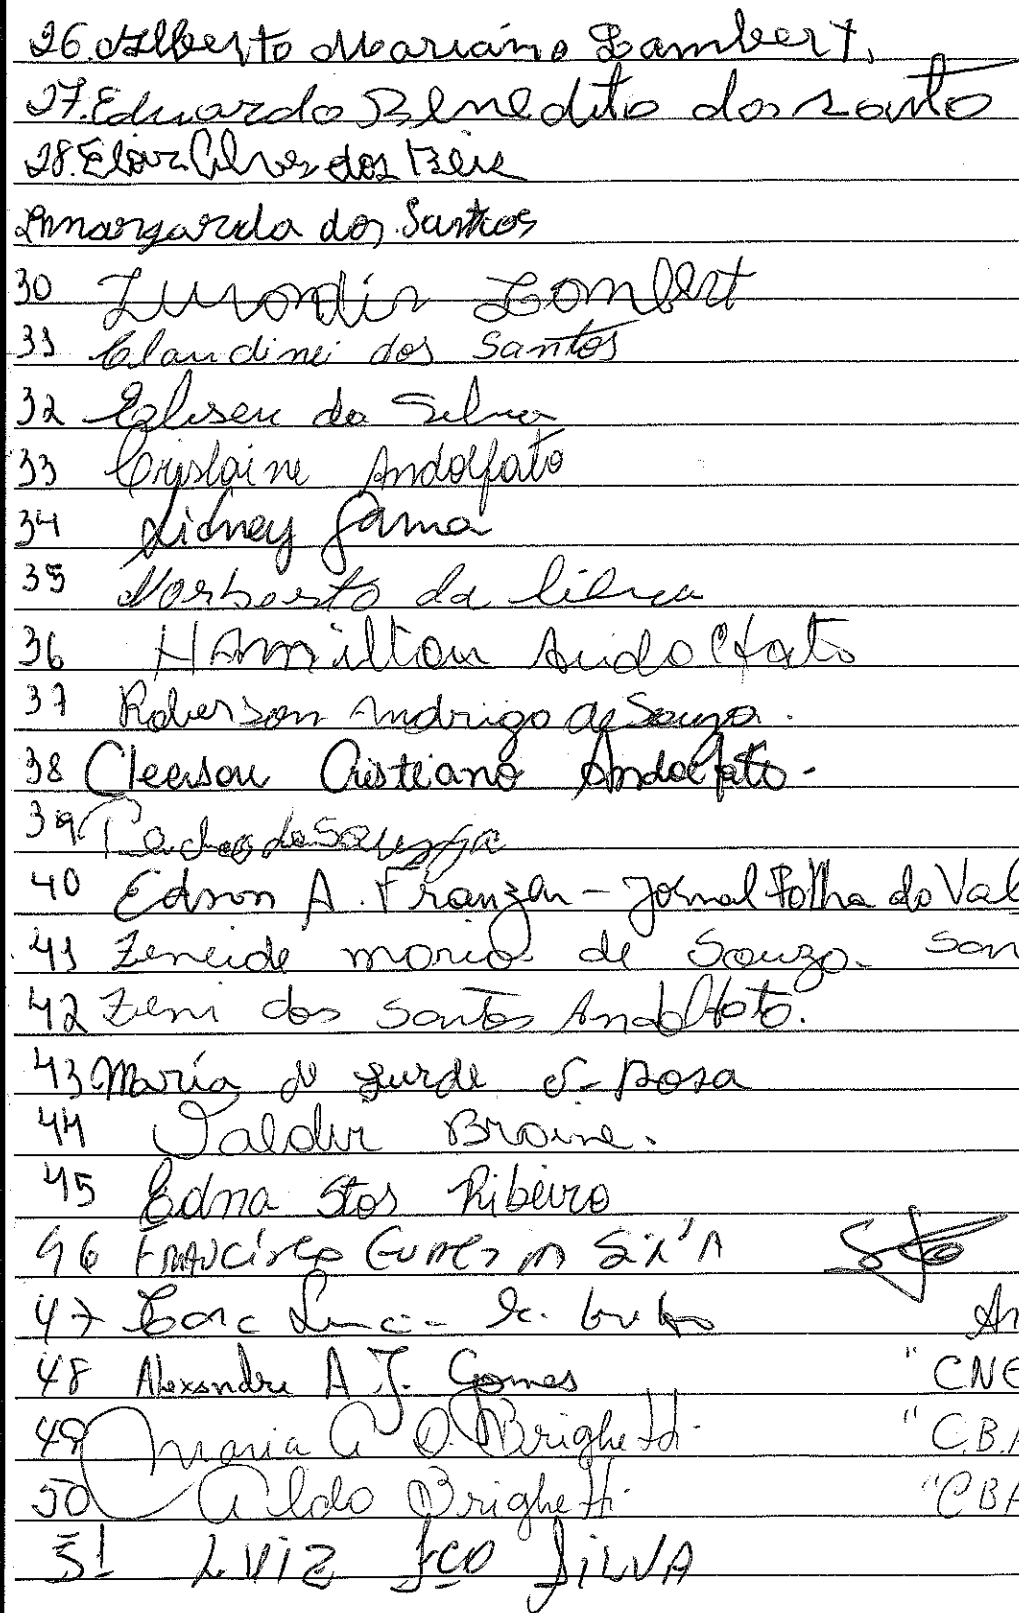 26. Alberto Mariano Lambert.
27. Eduardo Benedito dos Santo
28. Eloir Alves dos Reis
margarida dos Santos
30 Jurondir Lombert
31 Claudinei dos Santos
32 Eliseu da Silva
33 Crislaine Andolfato
34 Sidney Gama
35 Norberto da Silva
36 HAmilton Andolfato
37 Roberson Andrigo de Souza.
38 Cleerson Cristiano Andolfato-
39 de Souza
40 Edson A. Franzen - Jornal Folha do Val
41 Zeneide moria de Souza. San
42 Zeni dos Santos Andolfato.
43 Maria de Lurde S. Rosa
44 Valdir Broine.
45 Edna Stos Ribeiro
46 FRANCisco
47
48 Alexandre A J. Gomes "CNE
49 Maria A O. Brighetti "C.B.A
50 Aldo Brighetti "CBA
51 LUIZ FCO SILVA